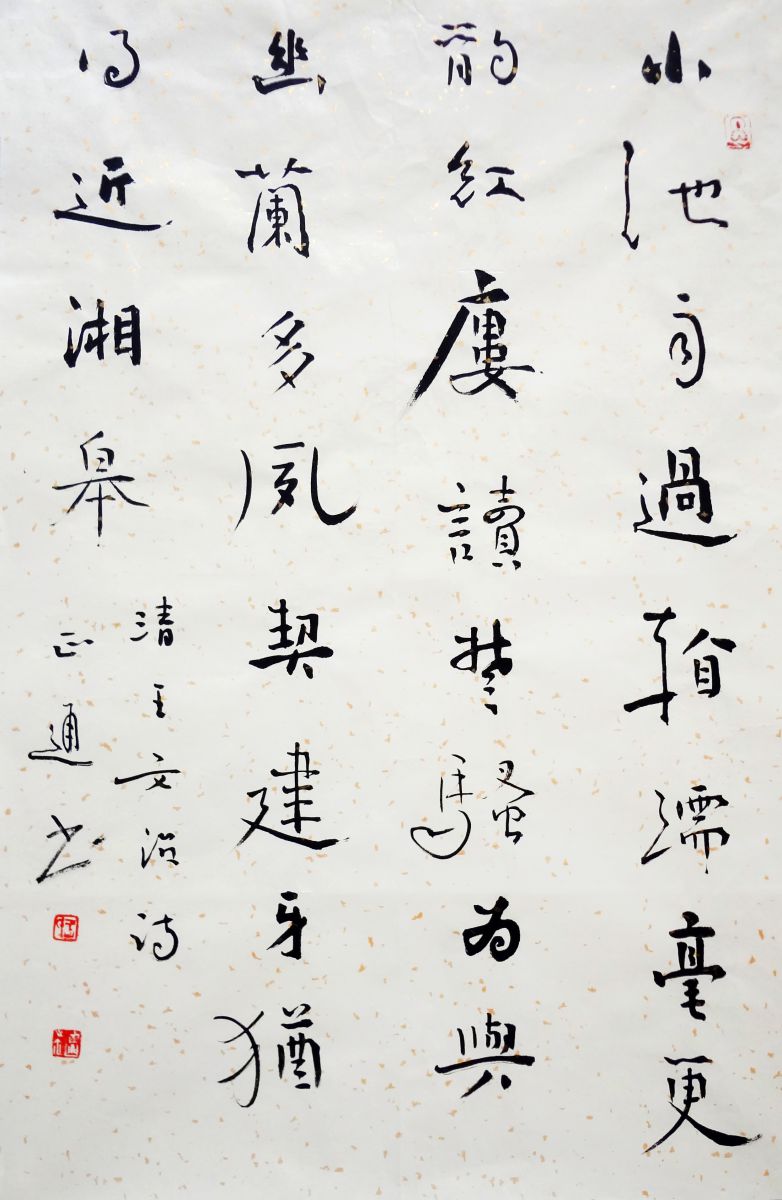 小池過翰濡毫更
韵紅廔讀楚騷為與
幽蘭多夙契建牙猶
得近湘皋
清王文治诗
正通书